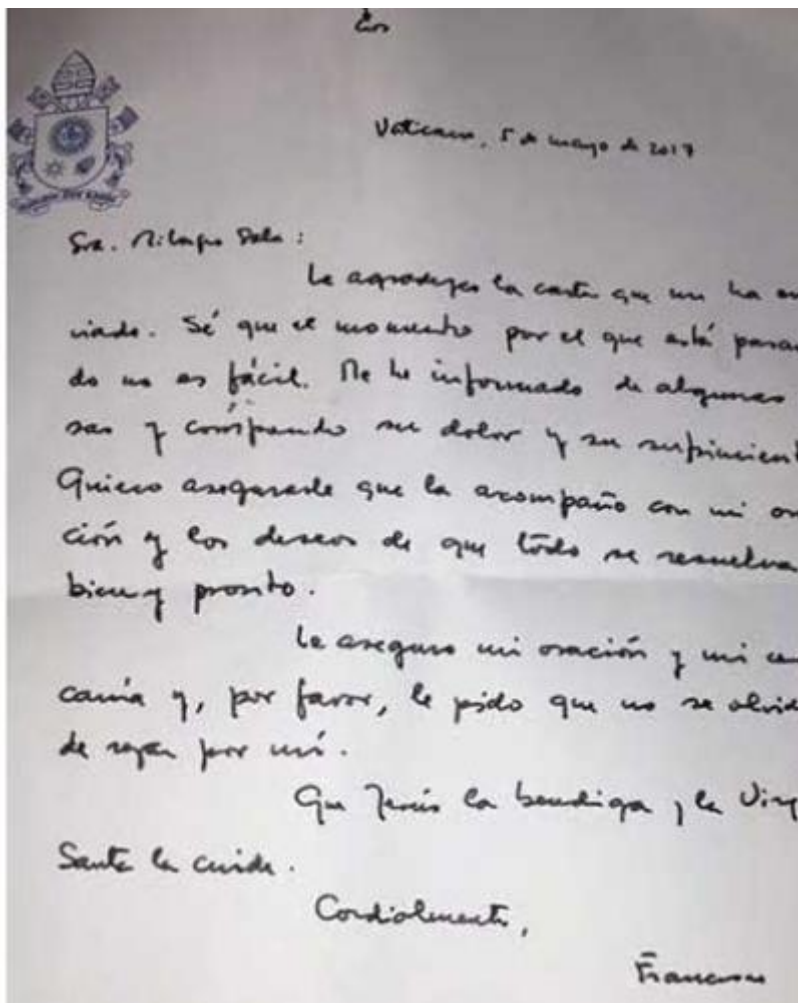 Vaticano, 5 de mayo de 2017
Sra. Milagro Sala:
Le agradezco la carta que me ha en
viado. Sé que el momento por el que está pasan
do no es fácil. Me he informado de algunas
sas y comprendo su dolor y su sufrimient
Quiero asegurarle que la acompaño con mi ora
ción y los deseos de que todo se resuelva
bien y pronto.
Le aseguro mi oración y mi cer
canía y, por favor, le pido que no se olvid
de rezar por mí.
Que Jesús la bendiga y la Virg
Santa la cuide.
Cordialmente,
Francisco